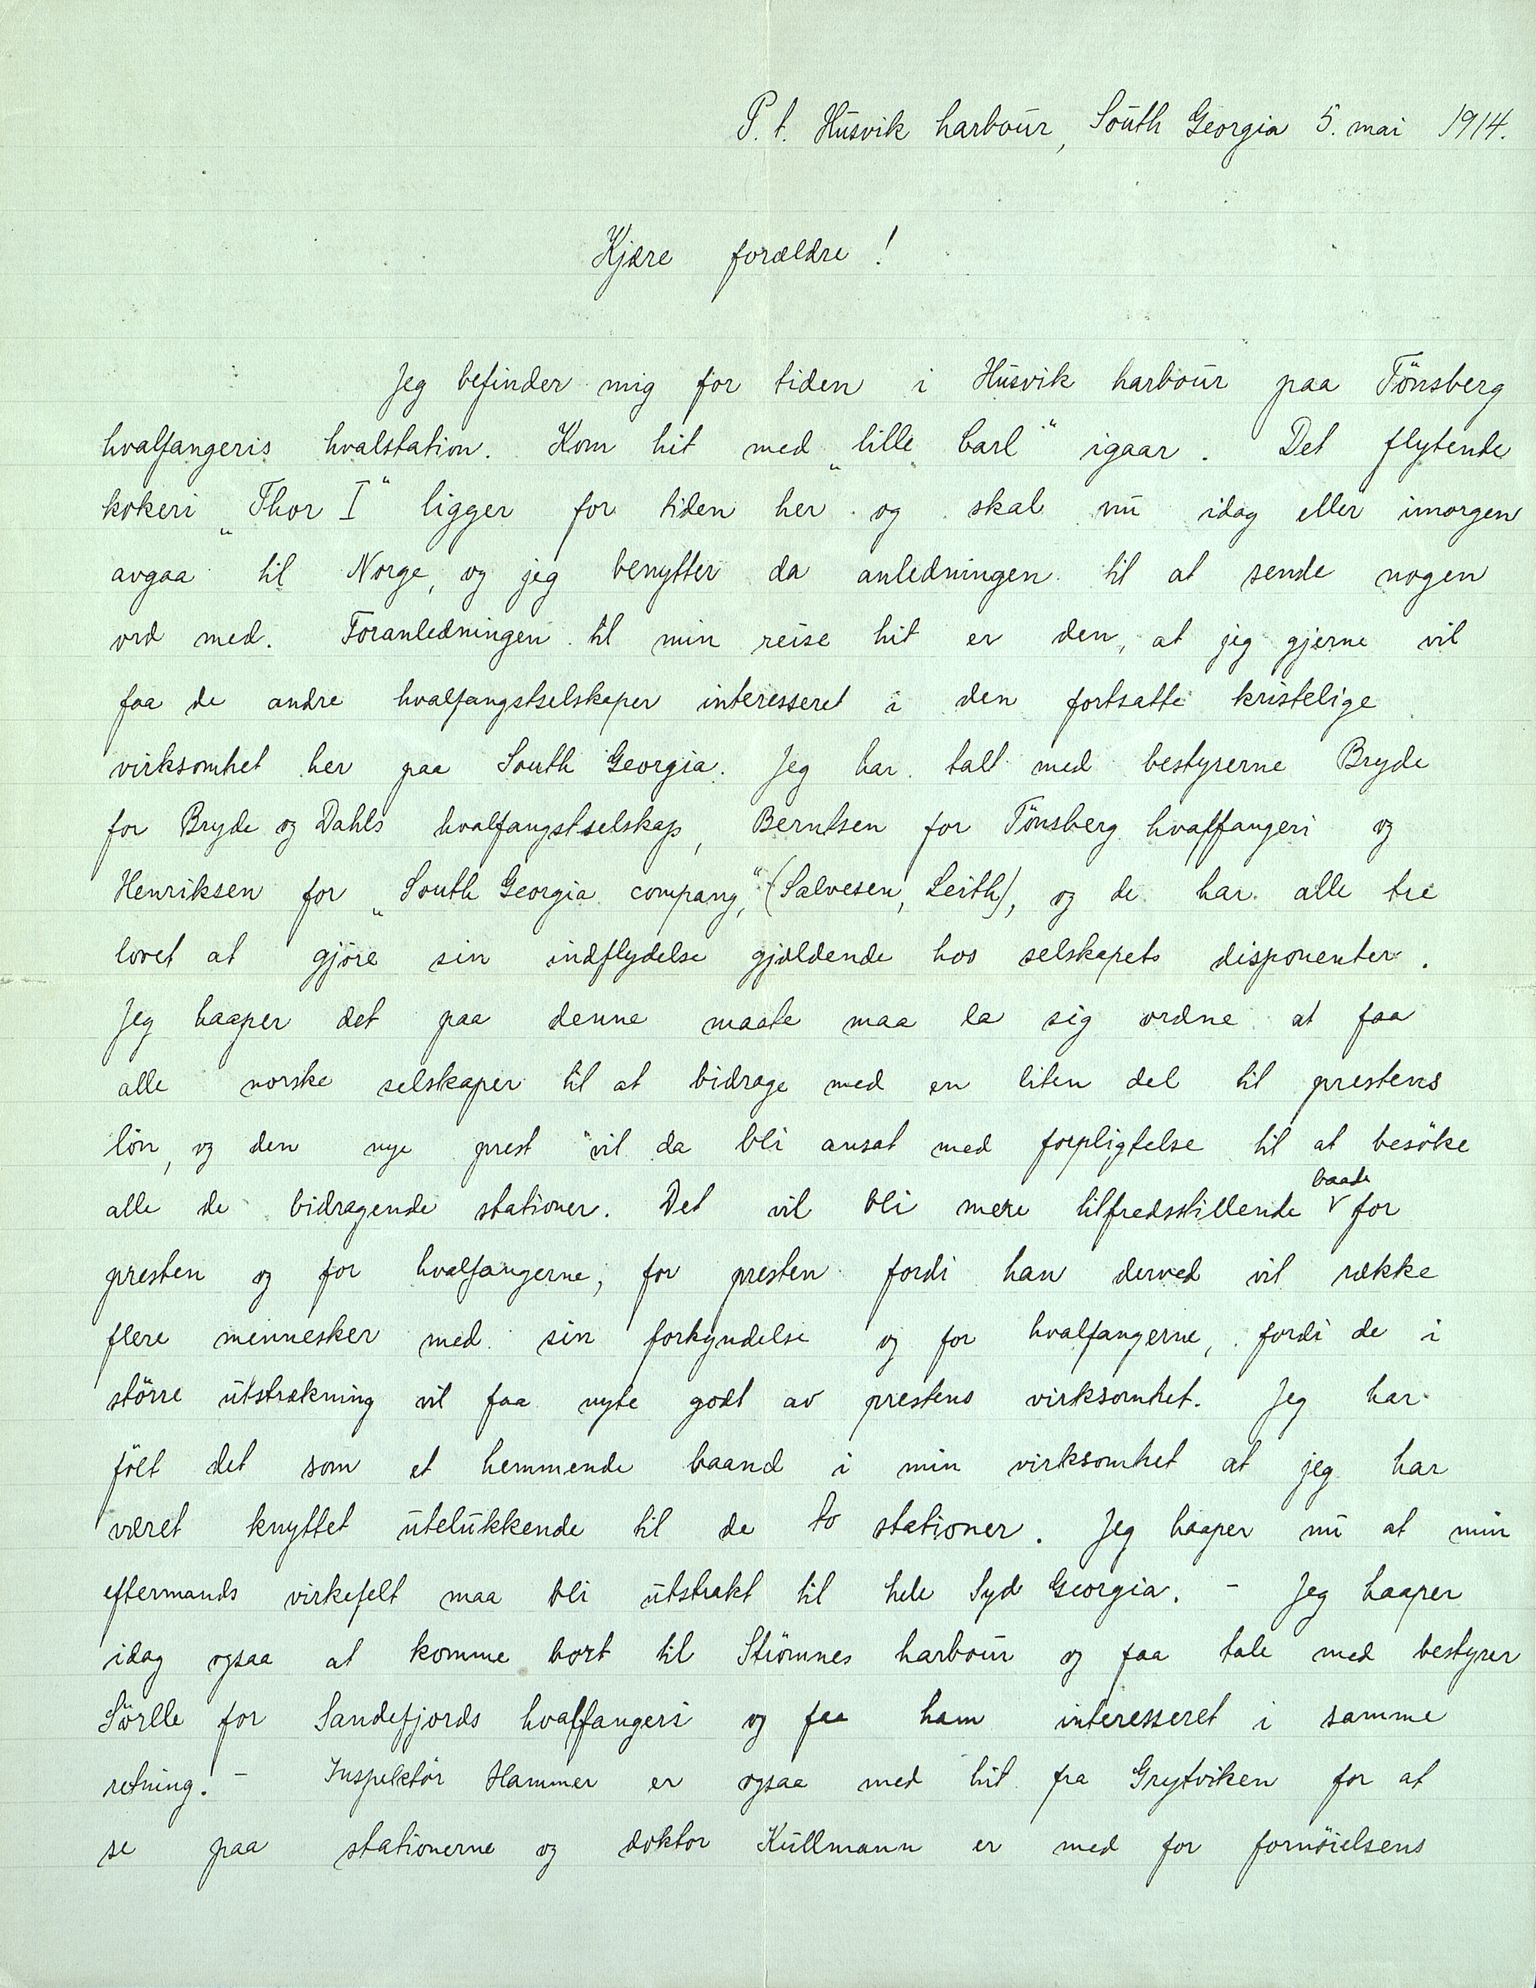 P. t. Husvik harbour, South Georgia 5. mai 1914.
Kjære forældre!
Jeg befinder mig for tiden i Husvik harbour paa Tönsberg
hvalfangeris hvalstation. Kom hit med „lille Carl“ igaar. Det flytende
kokeri „Thor I“ ligger for tiden her og skal nu idag eller imorgen
avgaa til Norge, og jeg benytter da anledningen til at sende nogen
ord med. Foranledningen til min reise hit er den, at jeg gjerne vil
faa de andre hvalfangstselskaper interesseret i den fortsatte kristelige
virksomhet her paa South Georgia. Jeg har talt med bestyrerne Bryde
for Bryde og Dahls hvalfangstselskap, Berntsen for Tönsberg hvalfangeri og
Henriksen for „South Georgia company,“ (Salvesen, Leith), og de har alle tre
lovet at gjöre sin indflydelse gjældende hos selskapets disponenter.
Jeg haaper det paa denne maate maa la sig ordne at faa
alle norske selskaper til at bidrage med en liten del til prestens
lön, og den nye prest vil da bli ansat med forpligtelse til at besöke
alle de bidragende stationer. Det vil bli mere tilfredsstillende baade for
presten og for hvalfangerne, for presten fordi han derved vil række
flere mennesker med sin forkyndelse og for hvalfangerne, fordi de i
större utstrækning vil faa nyte godt av prestens virksomhet. Jeg har
fölt det som et hemmende baand i min virksomhet at jeg har
været knyttet utelukkende til de to stationer. Jeg haaper nu at min
eftermands virkefelt maa bli utstrakt til hele Syd Georgia. – Jeg haaper
idag ogsaa at komme bort til Strömnes harbour og faa tale med bestyrer
Sörlle for Sandefjords hvalfangeri og faa ham interesseret i samme
retning. – Inspektör Hammer er ogsaa med hit fra Grytviken for at
se paa stationerne og doktor Kullmann er med for fornöielsens